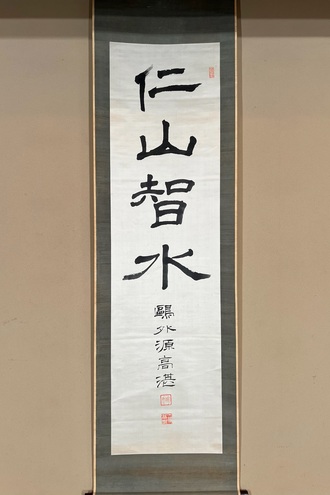 仁山智水
鷗外源高湛